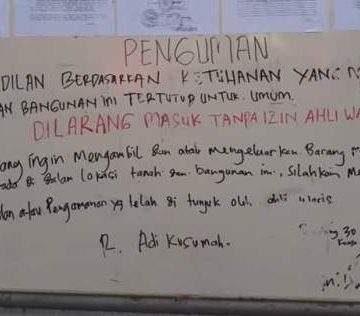 PENGUMAN
DILAN BERDASARKAN KETUHANAN YANG M
AN BANGUNAN INI TERTUTUP UNTUK UMUM.
DILARANG MASUK TANPA IZIN AHLI WA
ang ingin Mengambil dan atau mengeluarkan Barang M
ada di dalam lokasi tanah dan bangunan ini, Silahkan Me
dan atau Pengamanan yg telah di tunjuk oleh ahli waris.
R. Adi Kusumah.
30